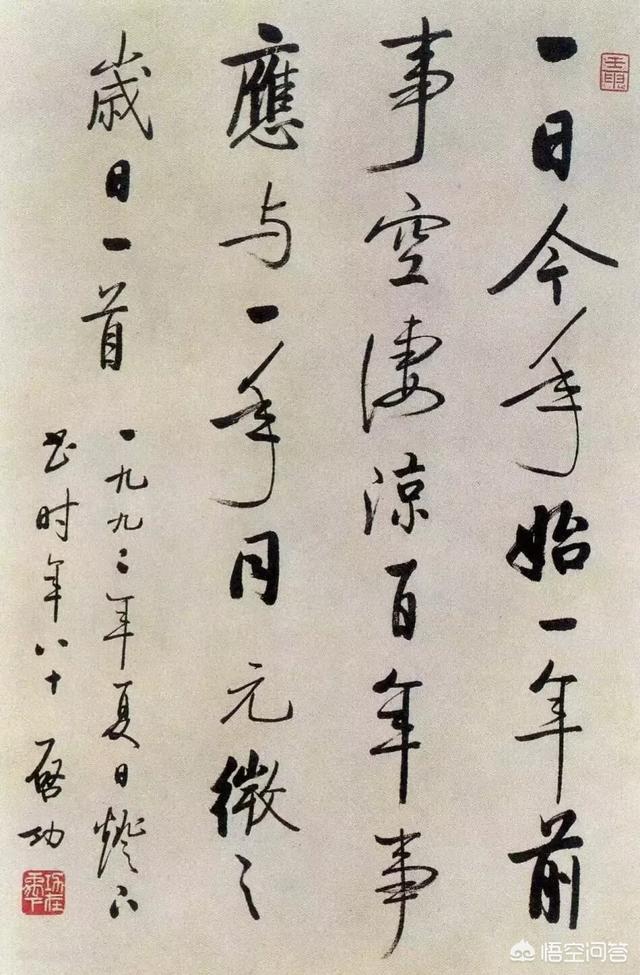 一日今年始一年前
事空淒涼百年事
應与一年同元微之
歲日一首
一九九二年夏日燈下
书时年八十
启功
悟空问答